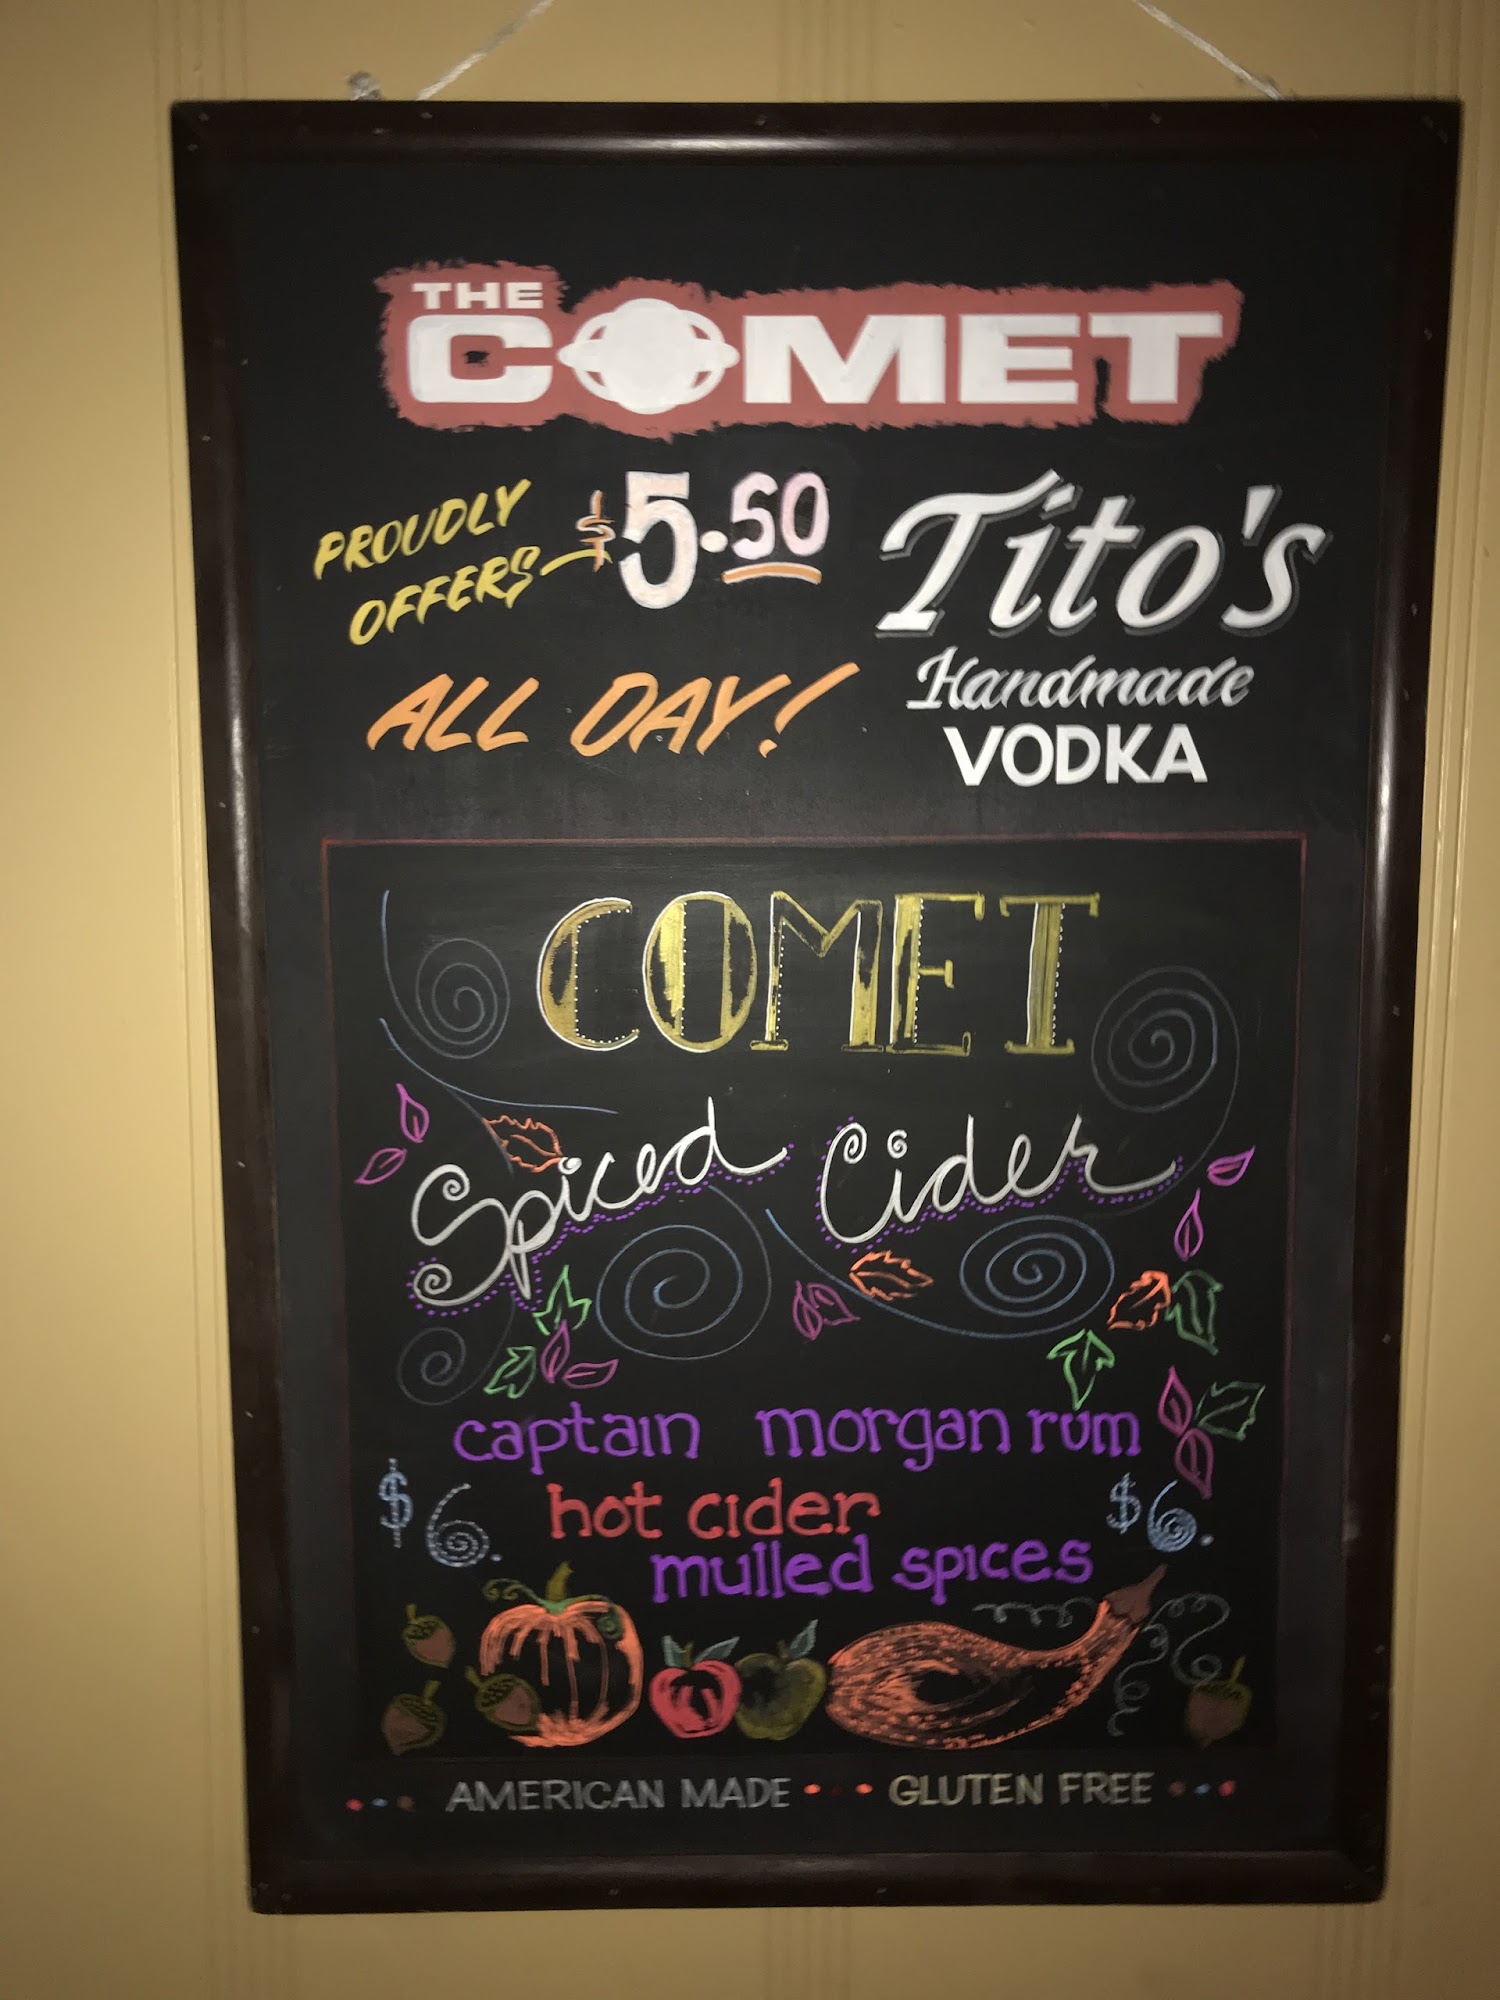 THE
COMET
PROUDLY
OFFERS $5.50
ALL DAY!
Tito's
Handmade
VODKA
COMET
Spiced Cider
captain morgan rum
$6. hot cider $6.
mulled spices
AMERICAN MADE GLUTEN FREE